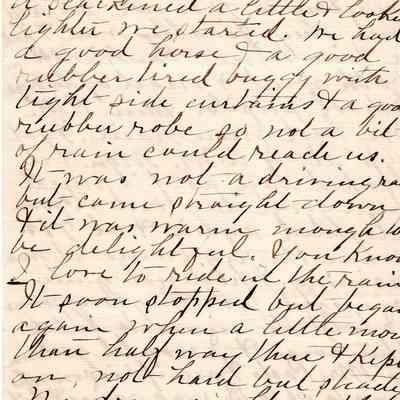 it slackened a little & looked
lighter we started. We had
a good horse & a good
rubber tired buggy with
tight side curtains & a goo
rubber robe so not a bit
of rain could reach us.
It was not a driving ra
but came straight down
& it was warm enough to
be delightful. You know
I love to ride in the rain
It soon stopped but began
again when a little mor
than half way there & kep
on, not hard but stead